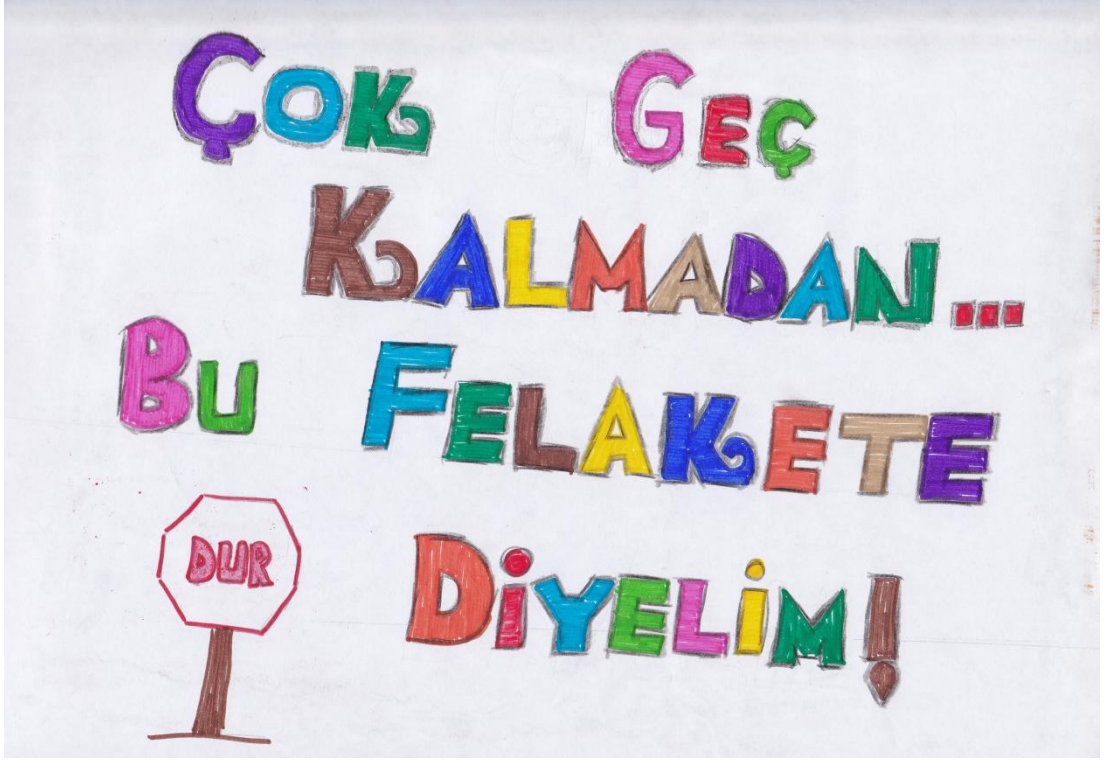 Çok Geç
KALMADAN...
Bu FELAKETE
DUR DİYELİM!